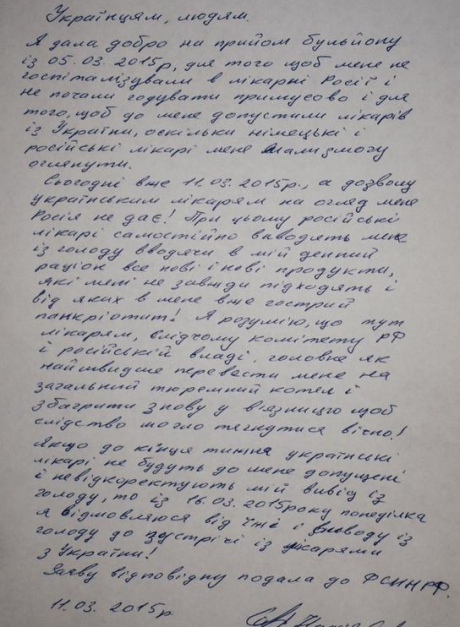 Українцям, людям.
Я дала добро на прийом бульйону
із 05.03.2015р, для того щоб мене не
госпіталізували в лікарні Росії і
не почали годувати примусово і для
того, щоб до мене допустили лікарів
із України, оскільки німецькі і
російські лікарі мене мали змогу
оглянути.
Сьогодні вже 11.03.2015р., а дозволу
українським лікарям на огляд мене
Росія не дає! При цьому російські
лікарі самостійно виводять мене
із голоду вводячи в мій денний
раціон все нові і нові продукти,
які мені не завжди підходять і
від яких в мене вже гострий
панкріотит! Я розумію, що тут
лікарям, слідчому комітету РФ
і російській владі головне як
найшвидше перевести мене на
загальний тюремний котел і
збагрити знову у в'язницю щоб
слідство могло тягнутися вічно!
Якщо до кінця тижня українські
лікарі не будуть до мене допущені
і невідкоректують мій вивід із
голоду, то із 16.03.2015року понеділка
я відмовляюся від їжі і виводу із
голоду до зустрічі із лікарями
з України!
Заяву відповідну подала до ФСИН РФ.
11.03.2015р